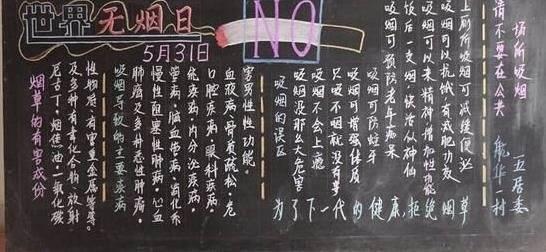 世界无烟日
5月31日
NO
烟草的有害成份
尼古丁、烟焦油、一氧化碳
及多种有毒化合物、放射
性物质、有害重金属等等。
吸烟导致的主要疾病
肺癌及多种恶性肿瘤,
慢性阻塞性肺病,心血
管病,脑血管病,消化系
统疾病,内分泌疾病,
口腔疾病,眼科疾病,
血液病,骨质疏松,危
害男性性功能。
吸烟的误区
吸烟没那么大危害
吸烟不会上瘾
只吸不咽就没有事
吸烟可增强体质
吸烟可防蛀牙
吸烟可预防老年痴呆
饭后一支烟,快活似神仙
吸烟可以来精神增加性功能
吸烟可以抗饿,有减肥功效
上厕所吸烟可减缓便泌
为了下一代的健康,拒绝烟草
请不要在公共
场所吸烟
华一村
五居委